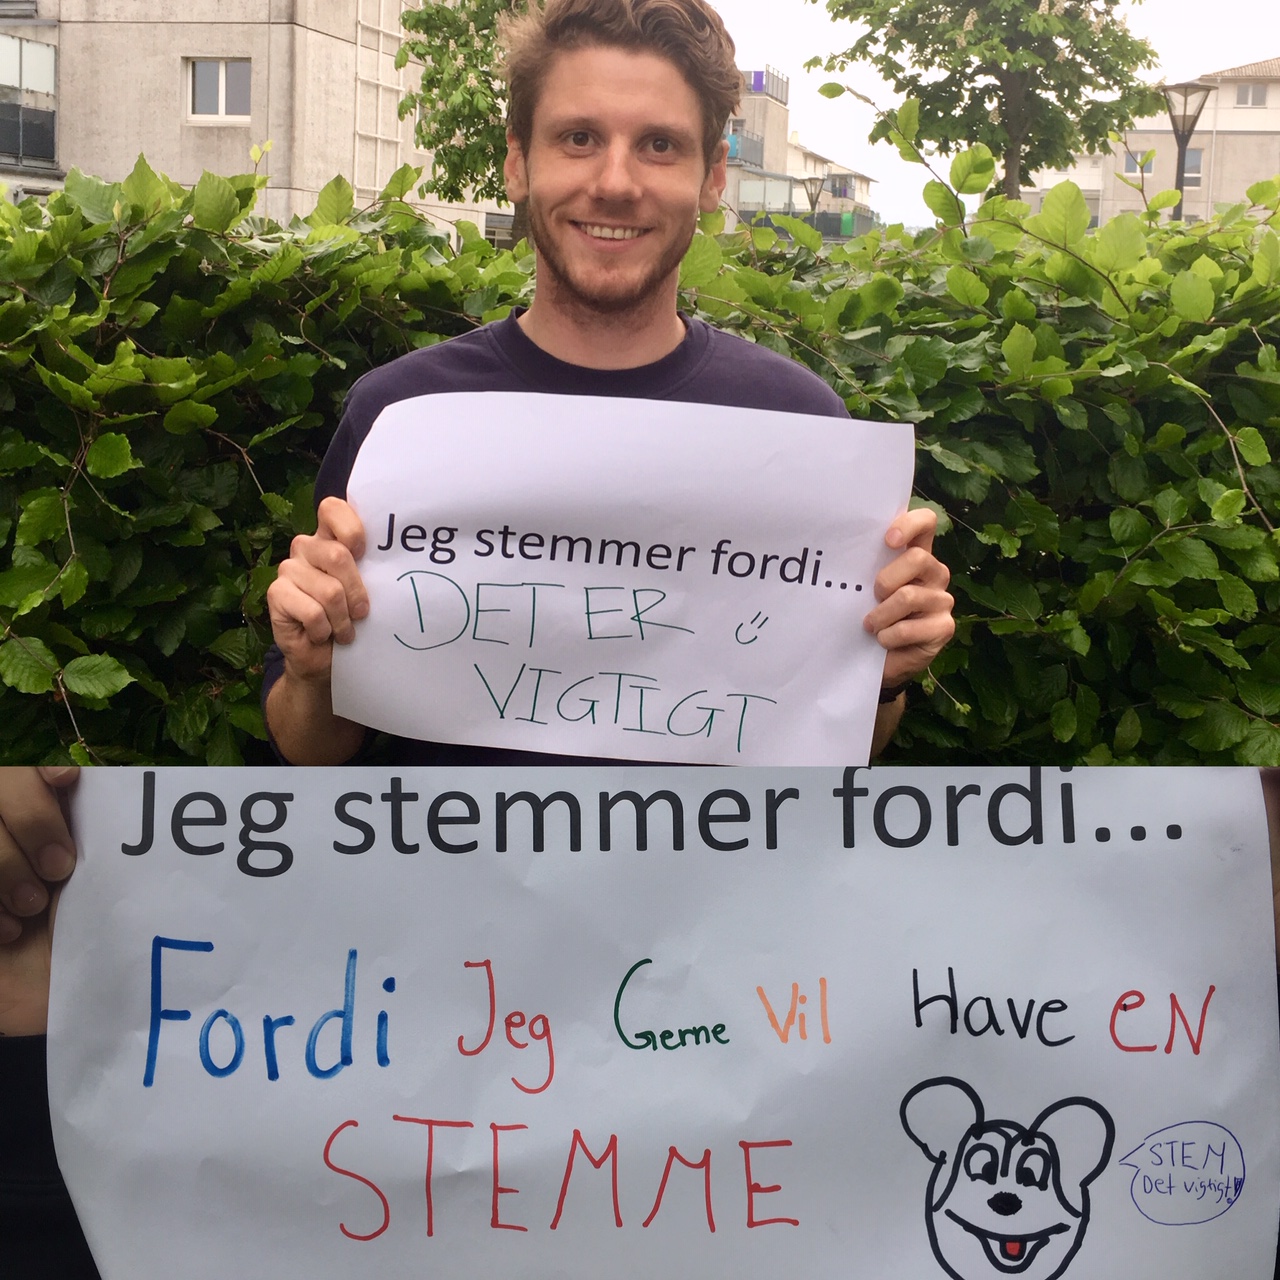 Jeg stemmer fordi...
DET ER
VIGTIGT
Jeg stemmer fordi...
Fordi Jeg Gerne Vil Have eN
STEMME
STEM
Det vigtigt!